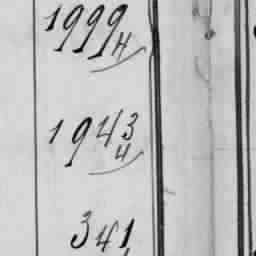 1999
4
1943
4
341